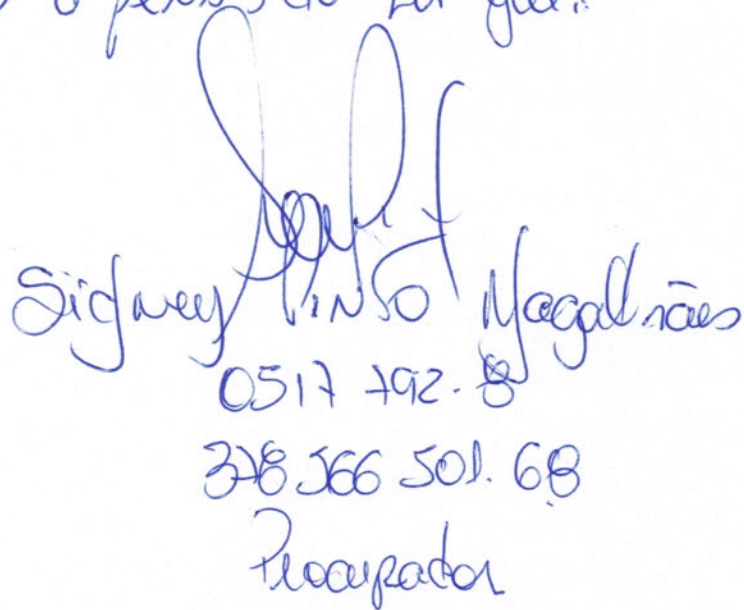 Sidney Pinto Magalhães
0517 792-8
378 566 501.68
Procurador